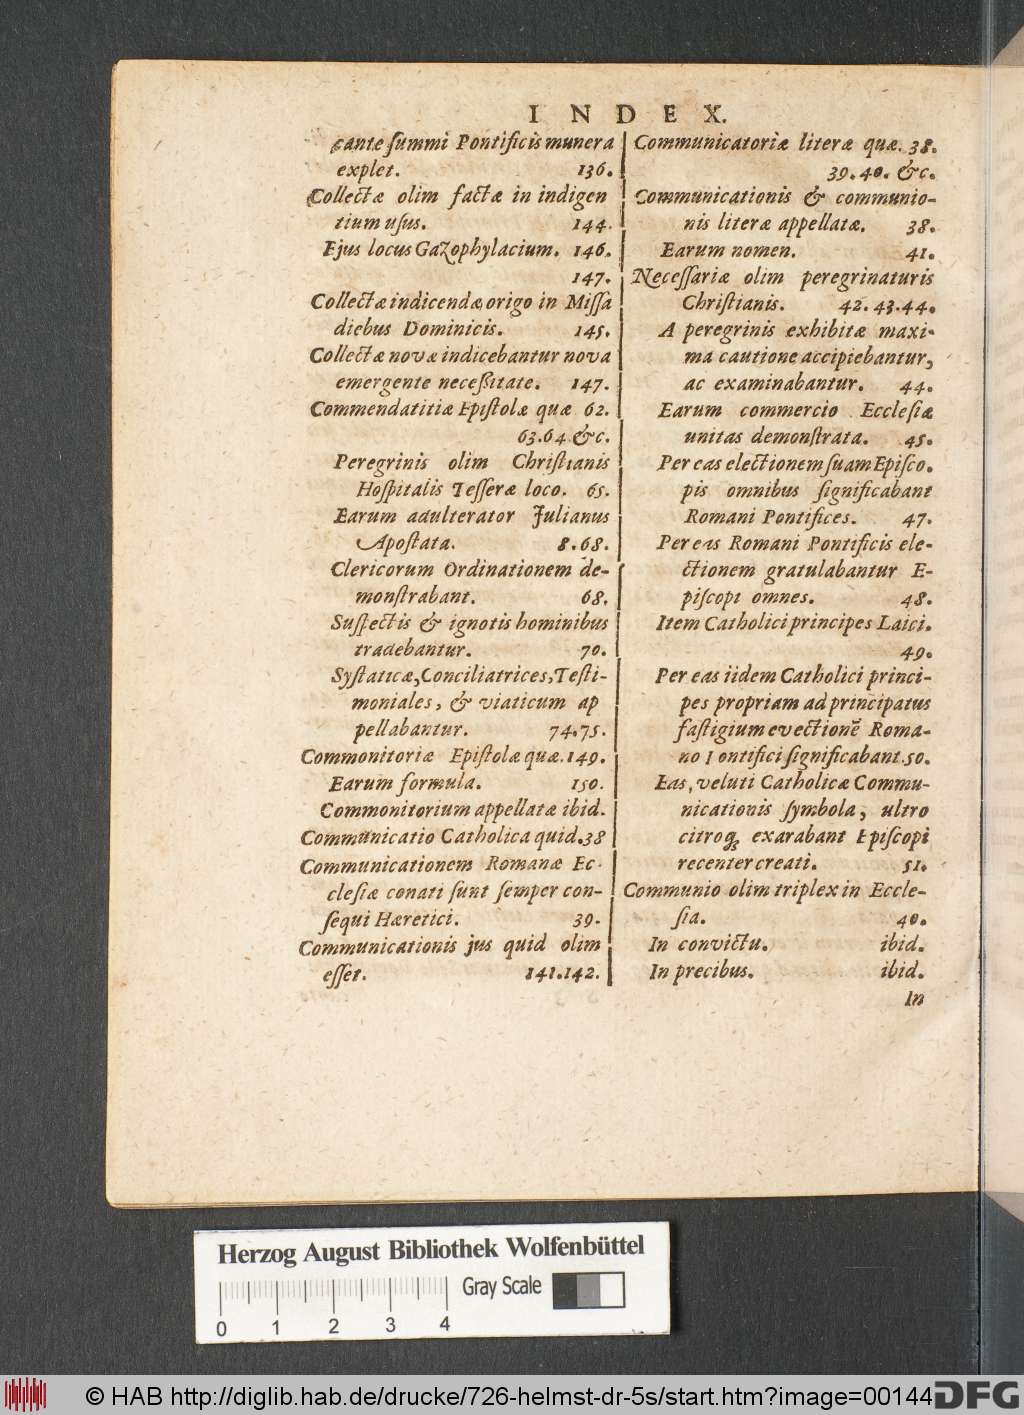 INDEX.
cante summi Pontificis munera
explet. 136.
Collectæ olim factæ in indigen
tium usus. 144.
Ejus locus Gazophylacium. 146.
147.
Collectæ indicendæ origo in Missa
diebus Dominicis. 145.
Collectæ novæ indicebantur nova
emergente necessitate. 147.
Commendatitiæ Epistolæ quæ 62.
63.64 &c.
Peregrinis olim Christianis
Hospitalis Tesseræ loco. 65.
Earum adulterator Julianus
Apostata. 8.68.
Clericorum Ordinationem de-
monstrabant. 68.
Suspectis & ignotis hominibus
tradebantur. 70.
Systaticæ, Conciliatrices, Testi-
moniales, & viaticum ap
pellabantur. 74.75.
Commonitoriæ Epistolæ quæ. 149.
Earum formula. 150.
Commonitorium appellatæ ibid.
Communicatio Catholica quid. 38
Communicationem Romanæ Ec-
clesiæ conati sunt semper con-
sequi Hæretici. 39.
Communicationis jus quid olim
esset. 141.142.
Communicatoriæ literæ quæ. 38.
39. 40. &c.
Communicationis & communio-
nis literæ appellatæ. 38.
Earum nomen. 41.
Necessariæ olim peregrinaturis
Christianis. 42. 43.44.
A peregrinis exhibitæ maxi-
ma cautione accipiebantur,
ac examinabantur. 44.
Earum commercio Ecclesiæ
unitas demonstrata. 45.
Per eas electionem suam Episco.
pis omnibus significabant
Romani Pontifices. 47.
Per eas Romani Pontificis ele-
ctionem gratulabantur E-
piscopi omnes. 48.
Item Catholici principes Laici.
49.
Per eas iidem Catholici princi-
pes propriam ad principatus
fastigium evectionē Roma-
no Pontifici significabant. 50.
Eas, veluti Catholicæ Commu-
nicationis symbola, ultro
citroq; exarabant Episcopi
recenter creati. 51.
Communio olim triplex in Eccle-
sia. 40.
In convictu. ibid.
In precibus. ibid.
In
Herzog August Bibliothek Wolfenbüttel
Gray Scale
0 1 2 3 4
© HAB http://diglib.hab.de/drucke/726-helmst-dr-5s/start.htm?image=00144
DFG